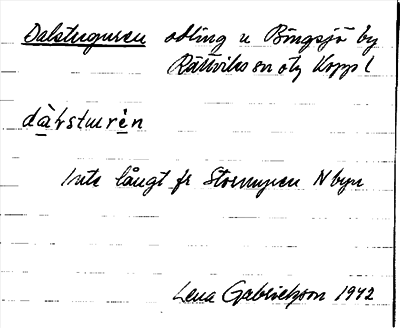 Dalstuguren odling u Bingsjö by
Rättviks sn
dàḷrsturèn
Inte långt fr Stormyren N byn
Lena Gabrielsson 1942